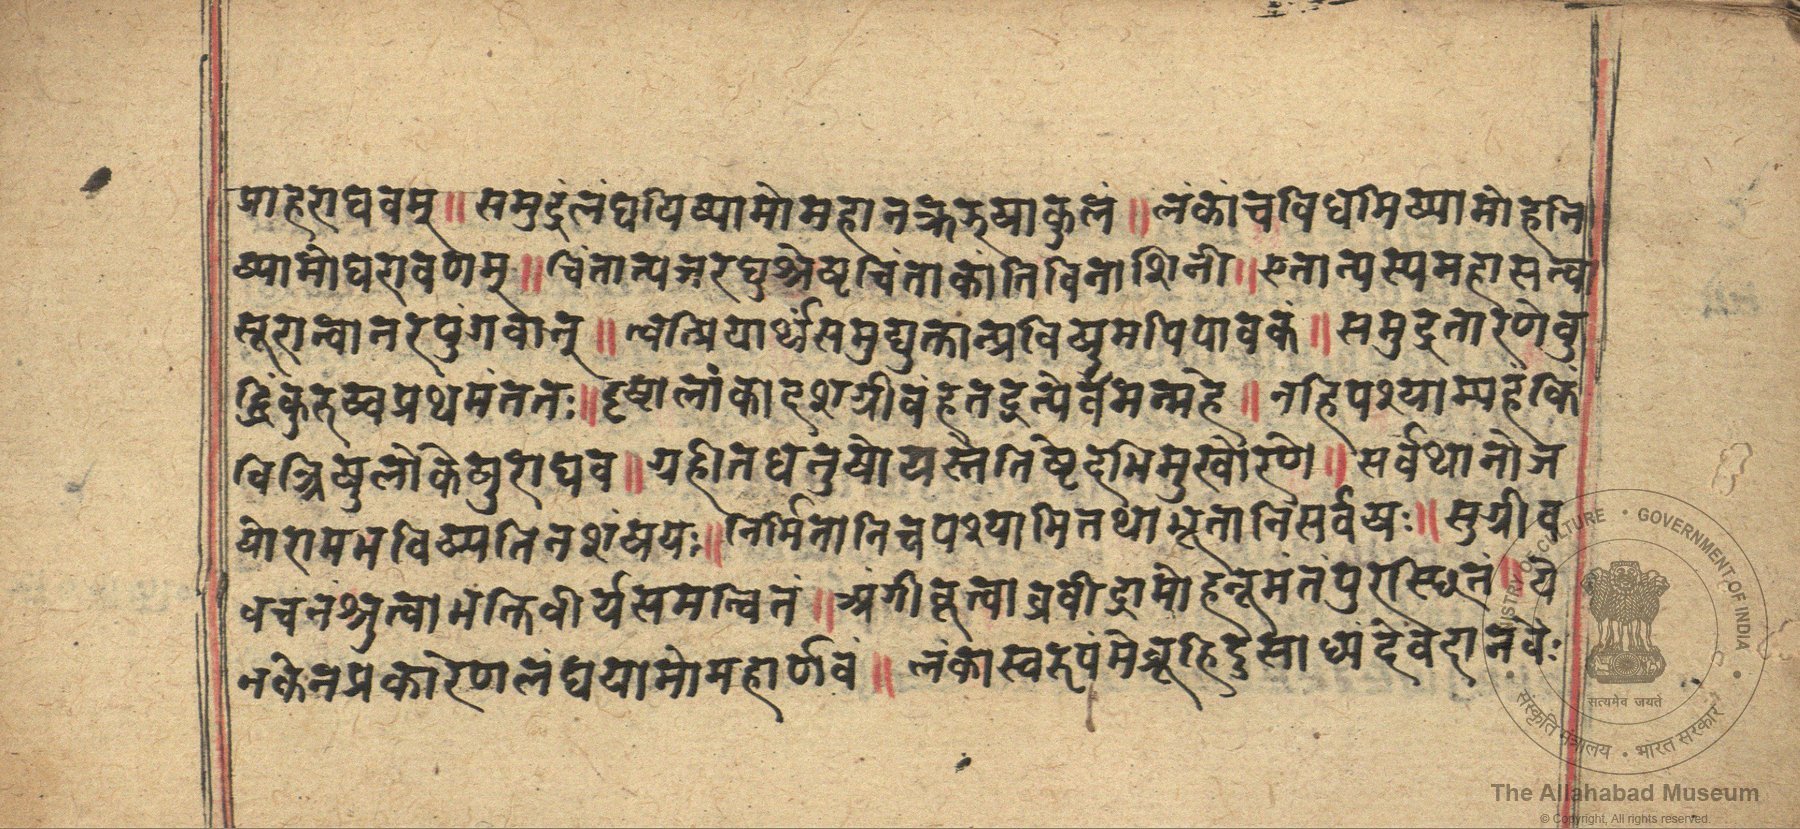 प्राहराघवम् ॥ समुद्रंलंघयिष्यामोमहानक्रझषाकुलं ॥ लंकांचविधमिष्यामोहनि
ष्यामोघरावणम् ॥ चिंतात्यजरघुश्रेष्ठचिंताकांतिविनाशिनी ॥ एतान्पस्यमहासत्वा
सूरान्वानरपुंगवान् ॥ त्वत्प्रियार्थंसमुद्युक्तान्प्रविष्टुमपिपावकं ॥ समुद्रतारणेबु
द्धिंकुरुष्वप्रथमंततः ॥ दृष्ट्वालांकांदशग्रीवंहतइत्येवमन्महे ॥ नहिपश्याम्यहंकिं
चित्रिषुलोकेषुराघव ॥ ग्रहीतधनुषोयस्तेतिष्ठेदभिमुखोरणे ॥ सर्वथानोज
योरामभविष्यतिनशंसयः ॥ निर्मितानिचपश्यामितथाभूतानिसर्वसः ॥ सुग्रीव
वचनंश्रुत्वाभक्तिवीर्यसमन्वितं ॥ अंगीकृत्वाब्रवीद्रामोहनूमंतंपुरास्थितं ॥ ये
नकेनप्रकारेणलंघयामोमहार्णवं ॥ लंकास्वरूपंमेब्रूहिदुसाध्यंदेवदानवैः
MINISTRY OF CULTURE • GOVERNMENT OF INDIA
सत्यमेव जयते
संस्कृति मंत्रालय • भारत सरकार
The Allahabad Museum
© Copyright, All rights reserved.